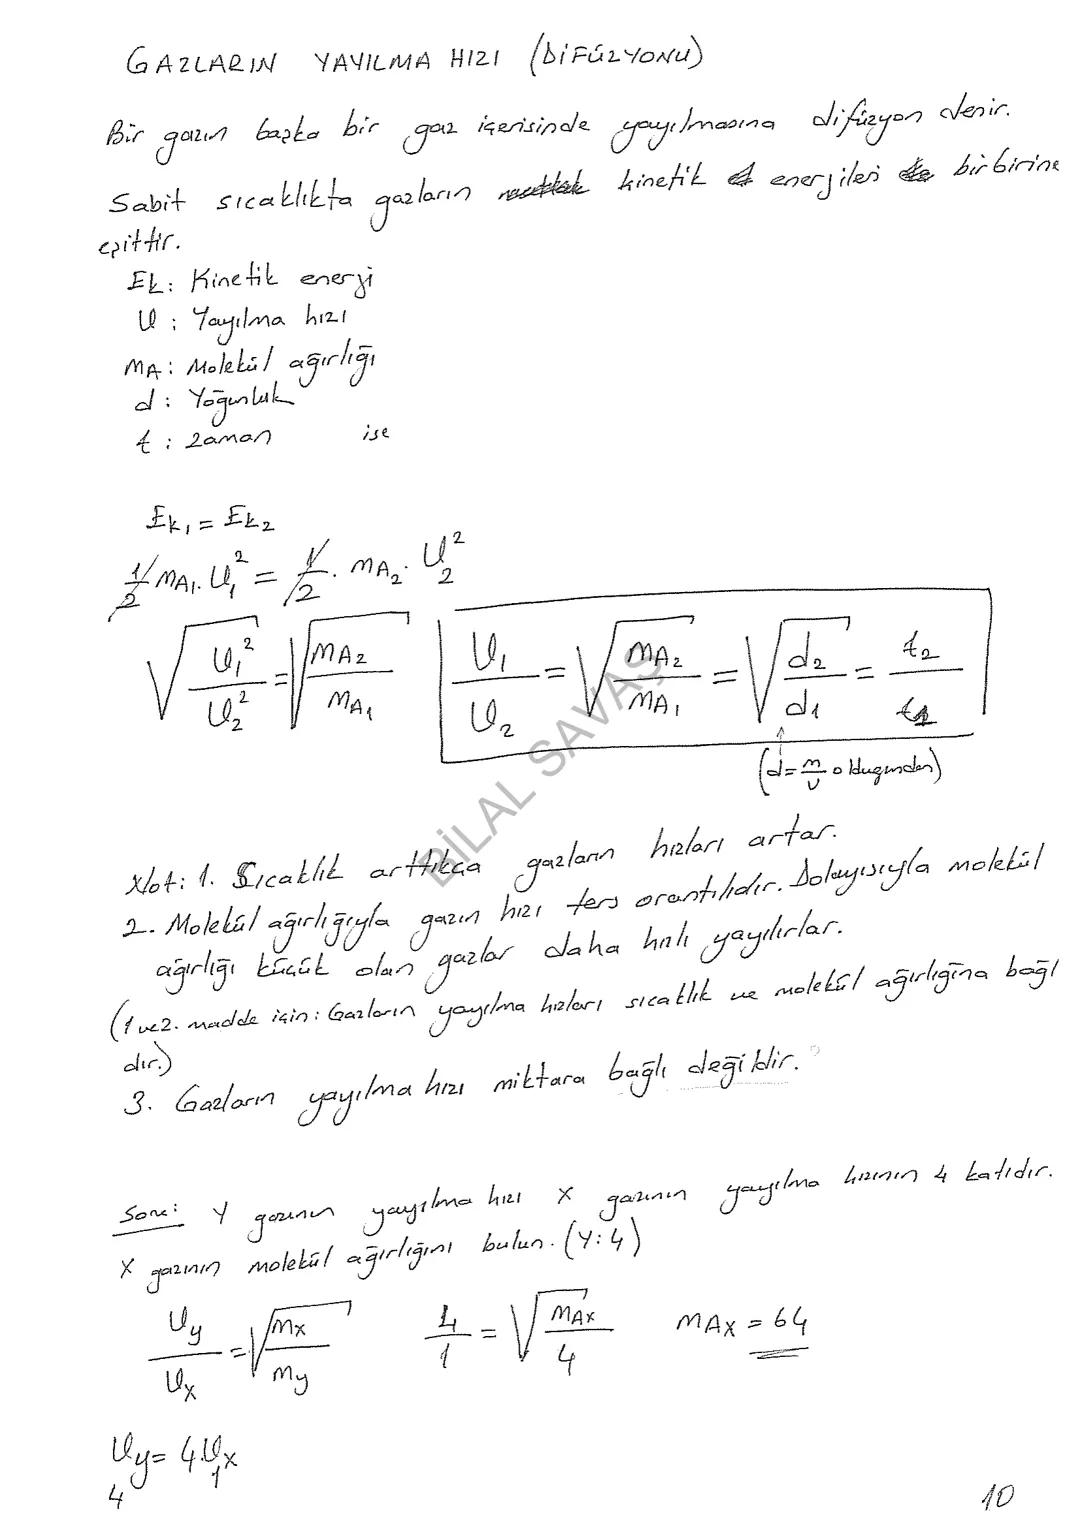 GAZLARIN YAYILMA HIZI (DİFÜZYONU)
Bir gazın başka bir gaz içerisinde yayılmasına difüzyon denir.
Sabit sıcaklıkta gazların kinetik enerjileri birbirine
eşittir.
Ek: Kinetik enerji
υ : Yayılma hızı
MA : Molekül ağırlığı
d : Yoğunluk
t : zaman ise
Ek₁ = Ek₂
1/2 MA₁. υ₁² = 1/2 . MA₂. υ₂²
√(υ₁²/υ₂²) = √(MA₂/MA₁)
υ₁/υ₂ = √(MA₂/MA₁) = √(d₂/d₁) = t₂/t₁
(d = m/v olduğundan)
BİLAL SAVAŞ
Not: 1. Sıcaklık arttıkça gazların hızları artar.
2. Molekül ağırlığıyla gazın hızı ters orantılıdır. Dolayısıyla molekül
ağırlığı küçük olan gazlar daha hızlı yayılırlar.
(1 ve 2. madde için: Gazların yayılma hızları sıcaklık ve molekül ağırlığına bağlı
dır.)
3. Gazların yayılma hızı miktara bağlı değildir.
Soru: Y gazının yayılma hızı X gazının yayılma hızının 4 katıdır.
X gazının molekül ağırlığını bulun. (Y:4)
υy/υx = √(Mx/My) 4/1 = √(MAx/4) MAx = 64
υy = 4.υx
4 1
10